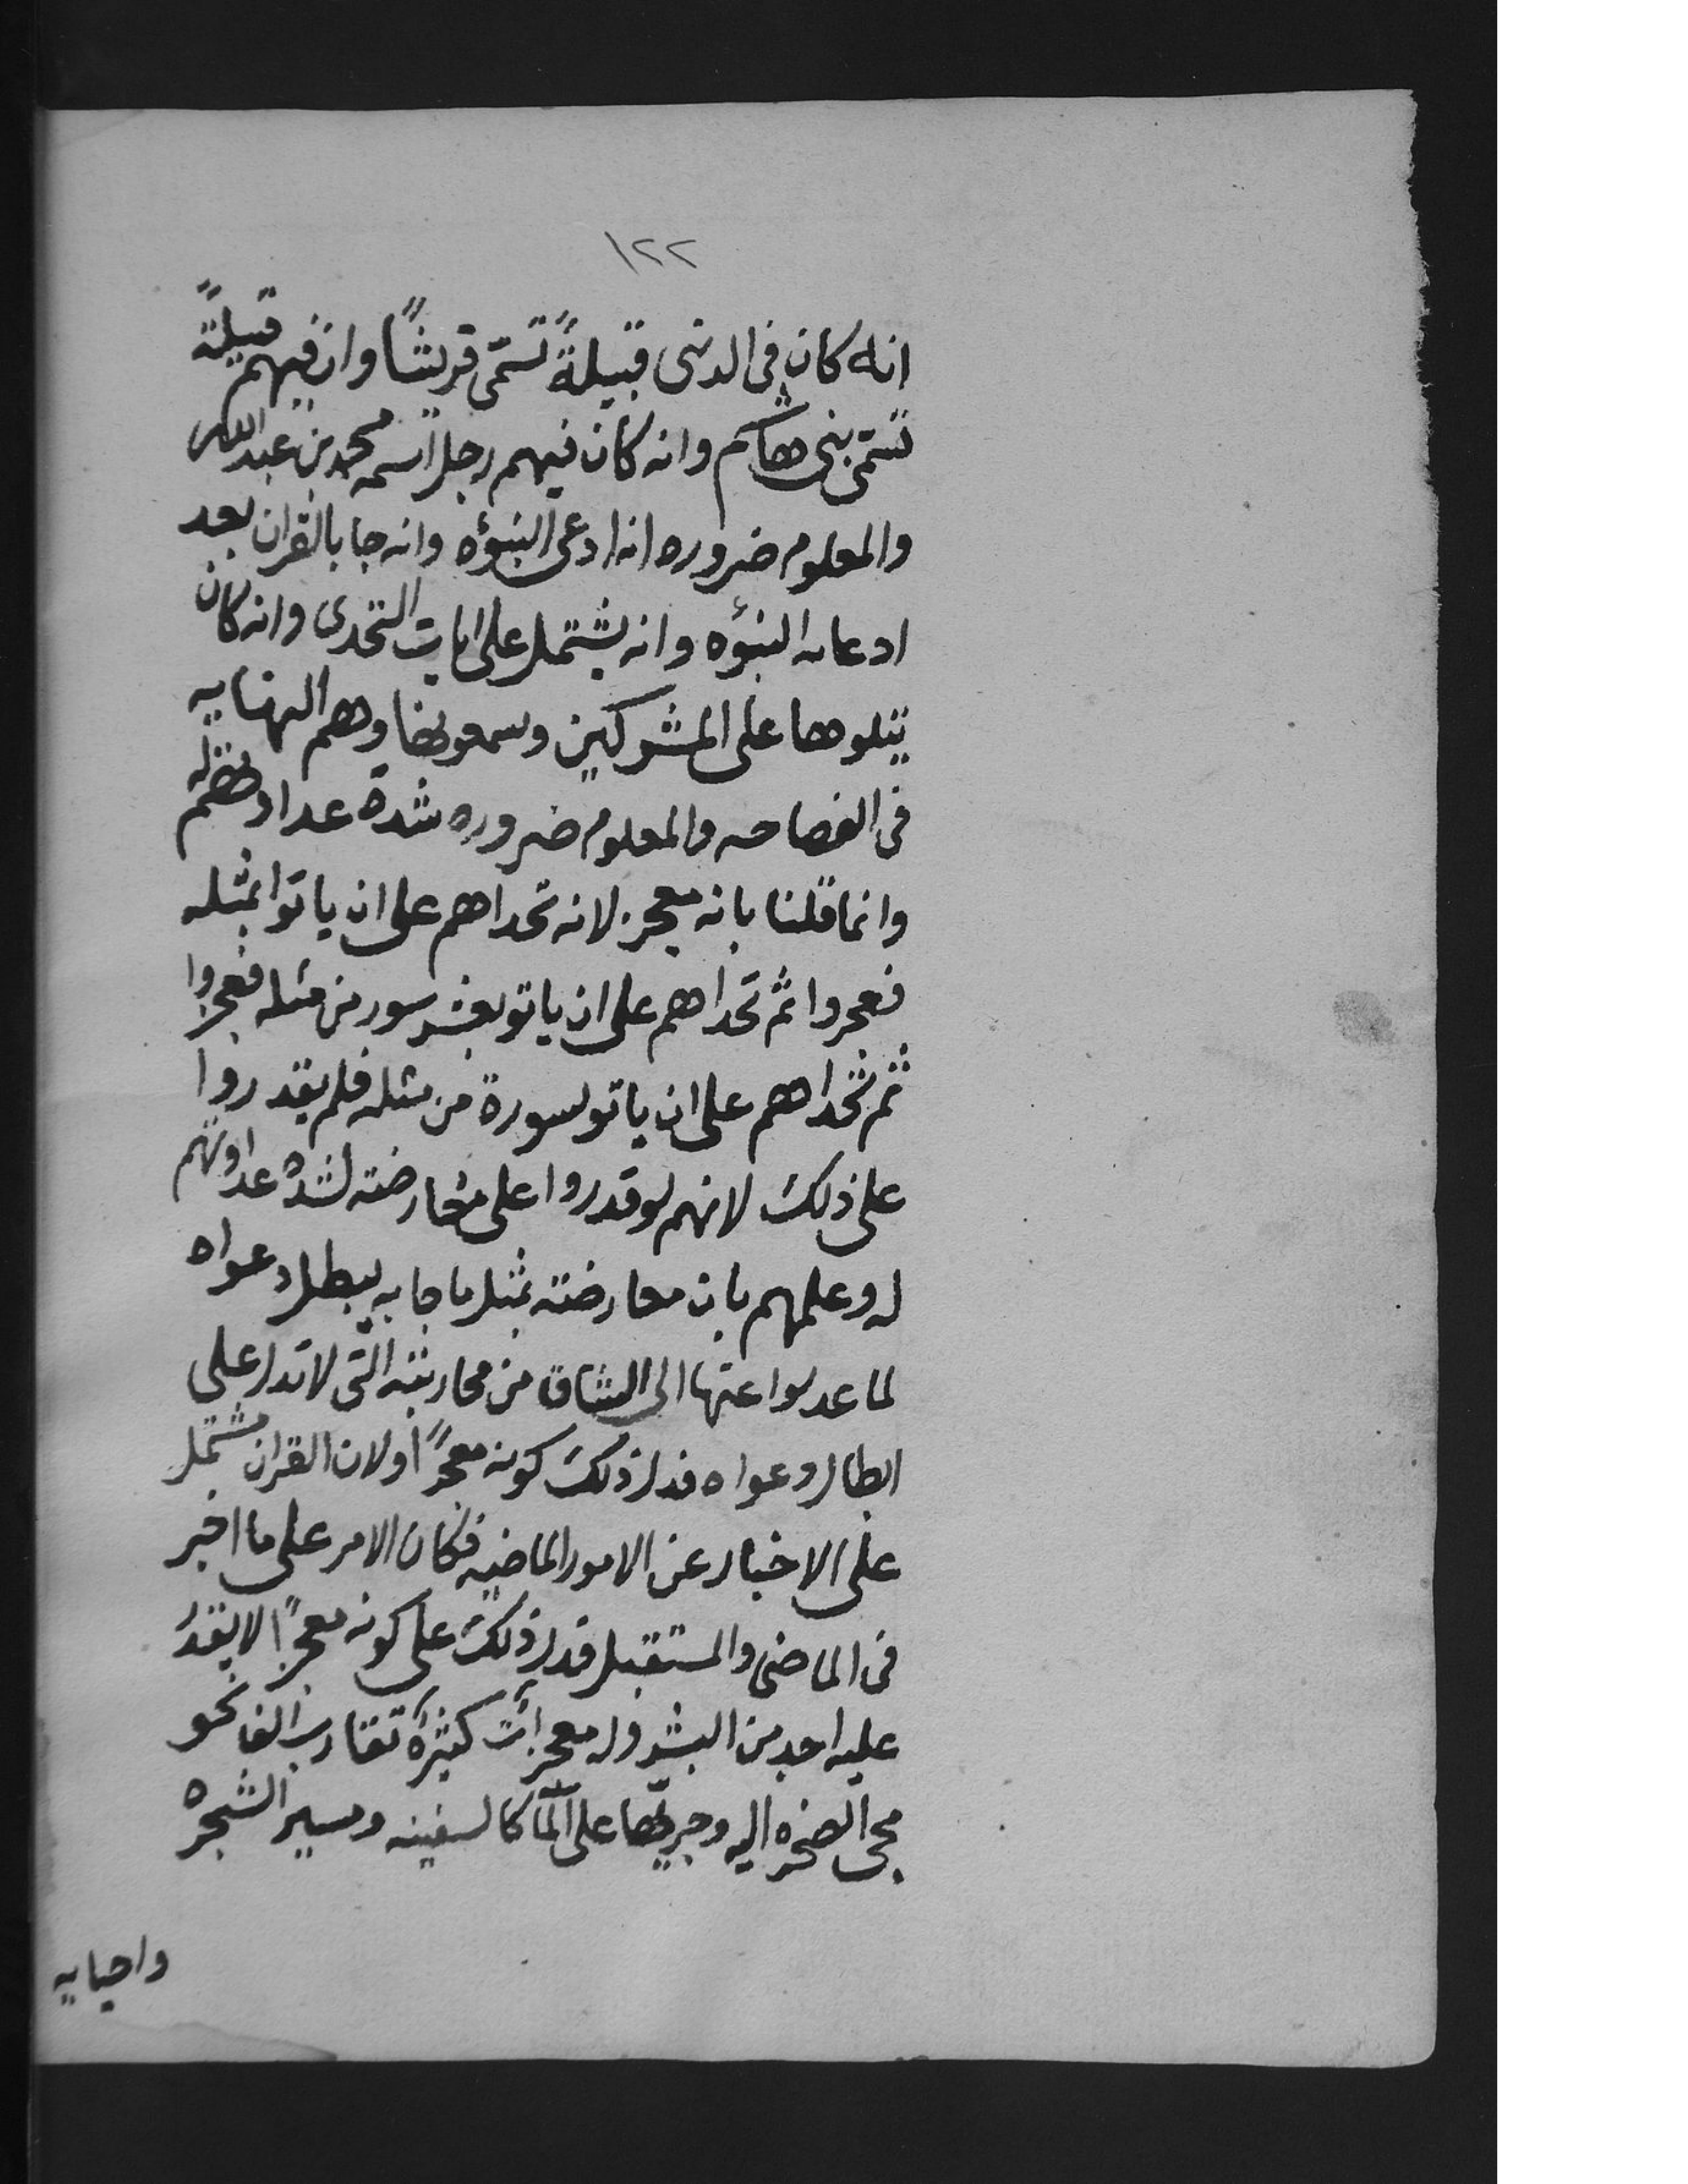 ١٢٢
انه كان فى الدنى قبيلةً تسمى قريشًا وان فيهم قبيلةً
تسمى بنى هاشم وانه كان فيهم رجل اسمه محمد بن عبدالله
والمعلوم ضروره انه ادعى النبؤه وانه جا بالقران بعد
ادعائه النبؤه وانه يشتمل على ايات التحدى وانه كان
يتلوها على المشركين ويسمعونها وهم النهايه
فى الفصاحه والمعلوم ضروره شدة عداوتهم له
وانما قلنا بانه معجز لانه تحداهم على ان ياتوا بمثله
فعجزوا ثم تحداهم على ان ياتو بعشر سور من مثله فعجزوا
ثم تحداهم على ان ياتو بسورة من مثله فلم يقدروا
على ذلك لانهم لو قدروا على معارضته لشدة عداوتهم
له وعلمهم بان معارضته بمثل ما جا به يبطل دعواه
لما عدلوا عنها الى الشاق من محاربته التى لا تدل على
ابطال دعواه فدل ذلك كونه معجزًا ولان القران مشتمل
على الاخبار عن الامور الماضيه فكان الامر على ما اخبر
فى الماضى والمستقبل فدل ذلك على كونه معجزًا لا يقدر
عليه احد من البشر وله معجزات كثيرة تقارب الفا نحو
مجى الصخره اليه وجريها على المآ كالسفينه ومسير الشجره
واحيايه